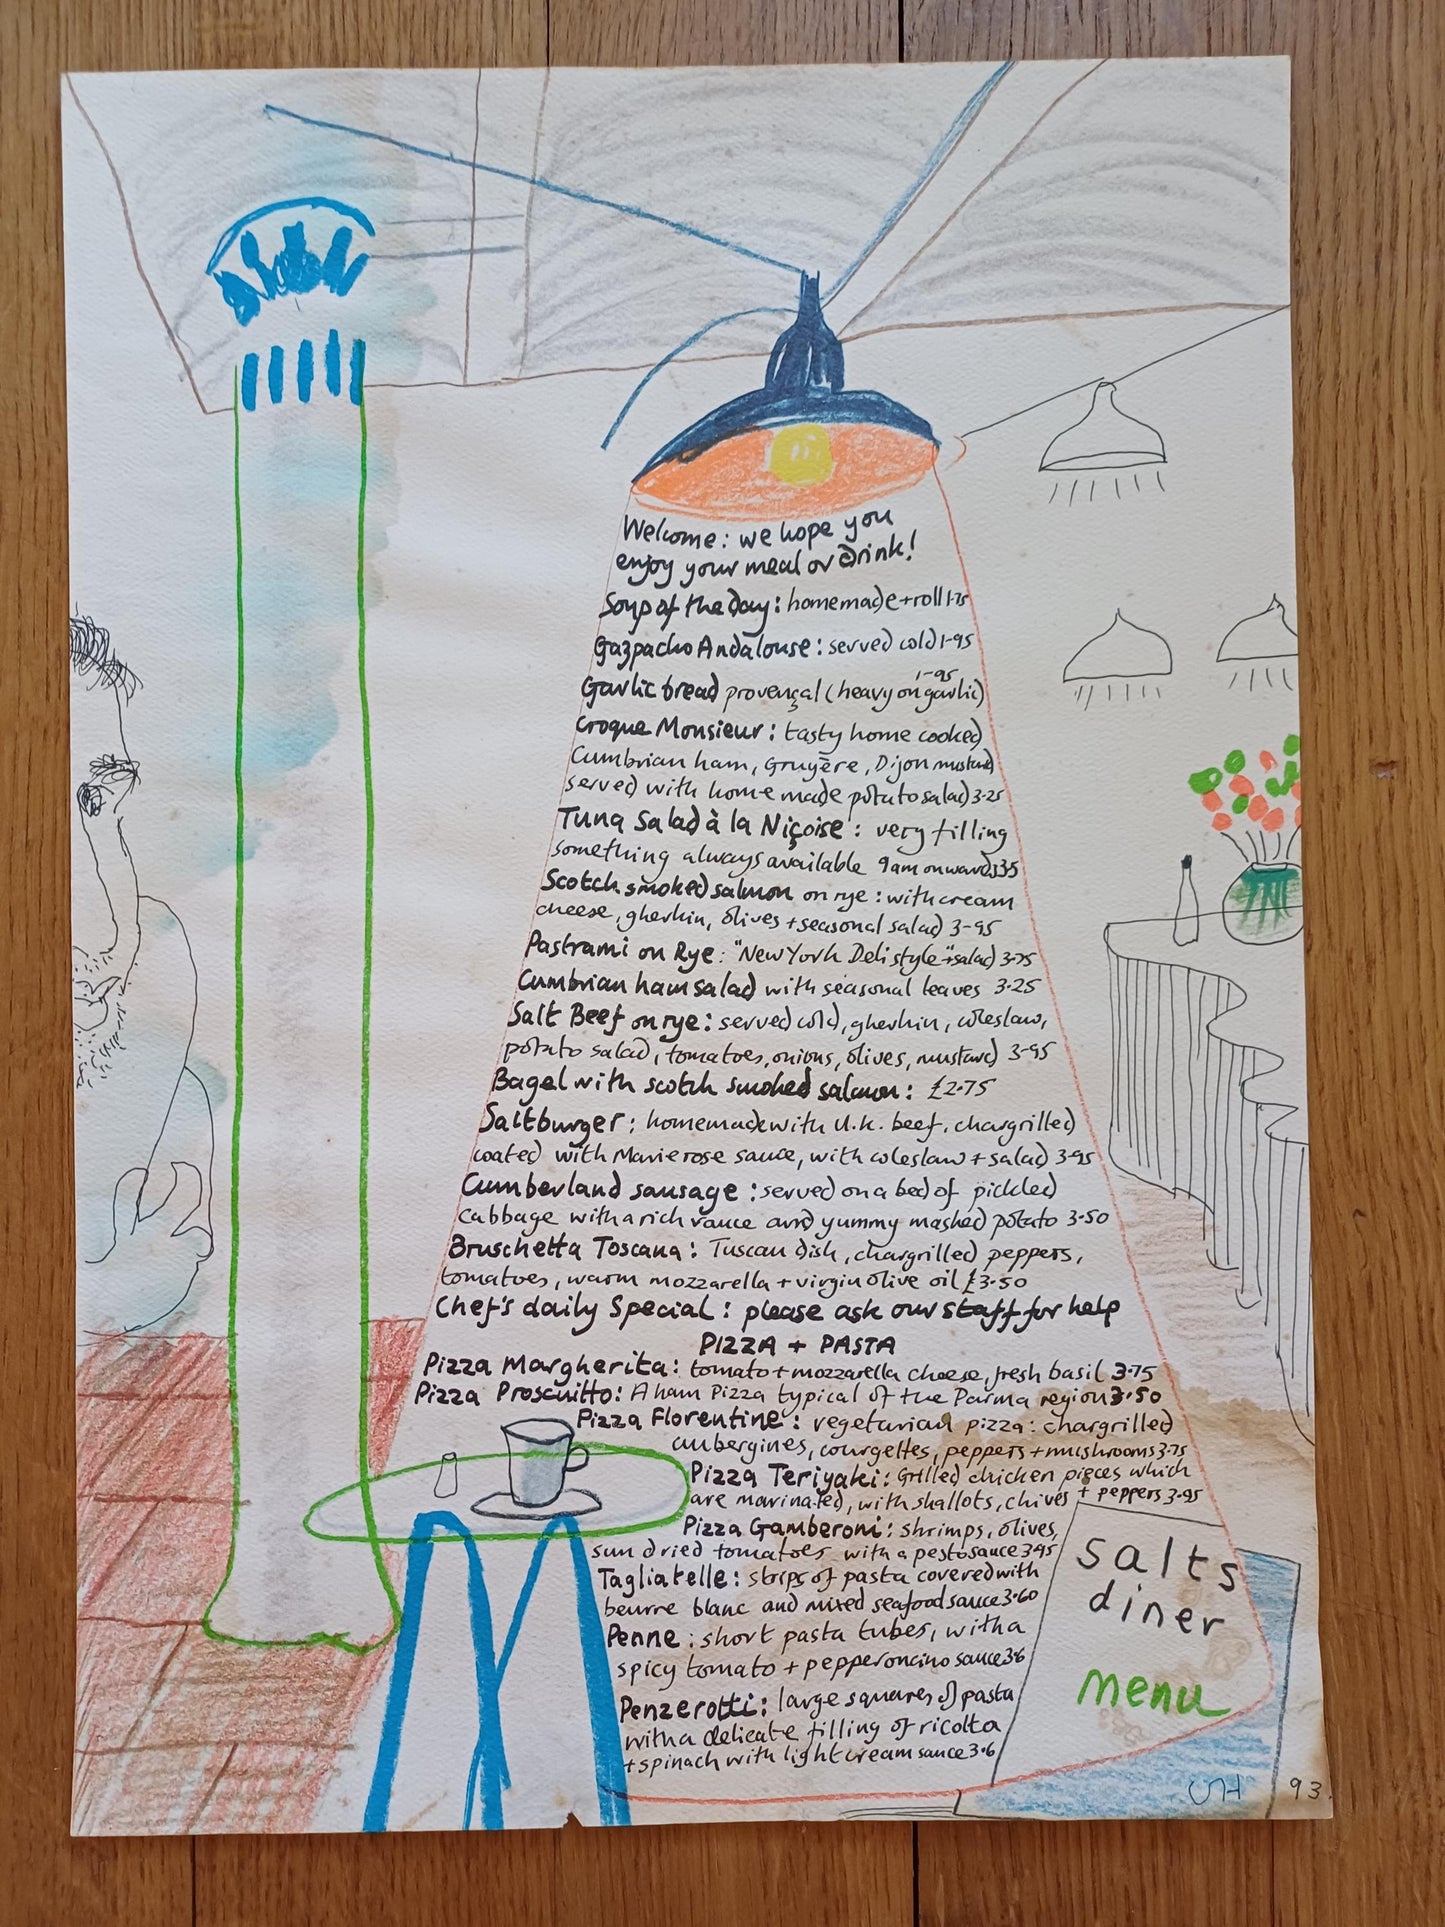 Welcome: we hope you
enjoy your meal or drink!
Soup of the day: homemade + roll 1.75
Gazpacho Andalouse: served cold 1-95
1-95
Garlic bread provençal (heavy on garlic)
Croque Monsieur: tasty home cooked
Cumbrian ham, Gruyère, Dijon mustard
served with home made potato salad 3-25
Tuna Salad à la Niçoise: very filling
something always available 9am onwards 3.35
Scotch smoked salmon on rye: with cream
cheese, gherkin, olives + seasonal salad 3-95
Pastrami on Rye: "New York Deli style" + salad 3-75
Cumbrian ham salad with seasonal leaves 3.25
Salt Beef on rye: served cold, gherkin, coleslaw,
potato salad, tomatoes, onions, olives, mustard 3-95
Bagel with scotch smoked salmon: £2.75
Saltburger: homemade with U.K. beef, chargrilled
coated with Marie rose sauce, with coleslaw + salad 3-95
Cumberland sausage: served on a bed of pickled
cabbage with a rich sauce and yummy mashed potato 3.50
Bruschetta Toscana: Tuscan dish, chargrilled peppers,
tomatoes, warm mozzarella + virgin olive oil £3.50
Chef's daily Special: please ask our staff for help
PIZZA + PASTA
Pizza Margherita: tomato + mozzarella cheese, fresh basil 3.75
Pizza Proscuitto: A ham Pizza typical of the Parma region 3.50
Pizza Florentine: vegetarian pizza: chargrilled
aubergines, courgettes, peppers + mushrooms 3.75
Pizza Teriyaki: Grilled chicken pieces which
are marinated, with shallots, chives + peppers 3.95
Pizza Gamberoni: shrimps, olives,
sun dried tomatoes with a pesto sauce 3.95
Tagliatelle: strips of pasta covered with
beurre blanc and mixed seafood sauce 3.60
Penne: short pasta tubes, with a
spicy tomato + pepperoncino sauce 3.6
Penzerotti: large squares of pasta
with a delicate filling of ricotta
+ spinach with light cream sauce 3.6
Salts
diner
menu
DH 93.